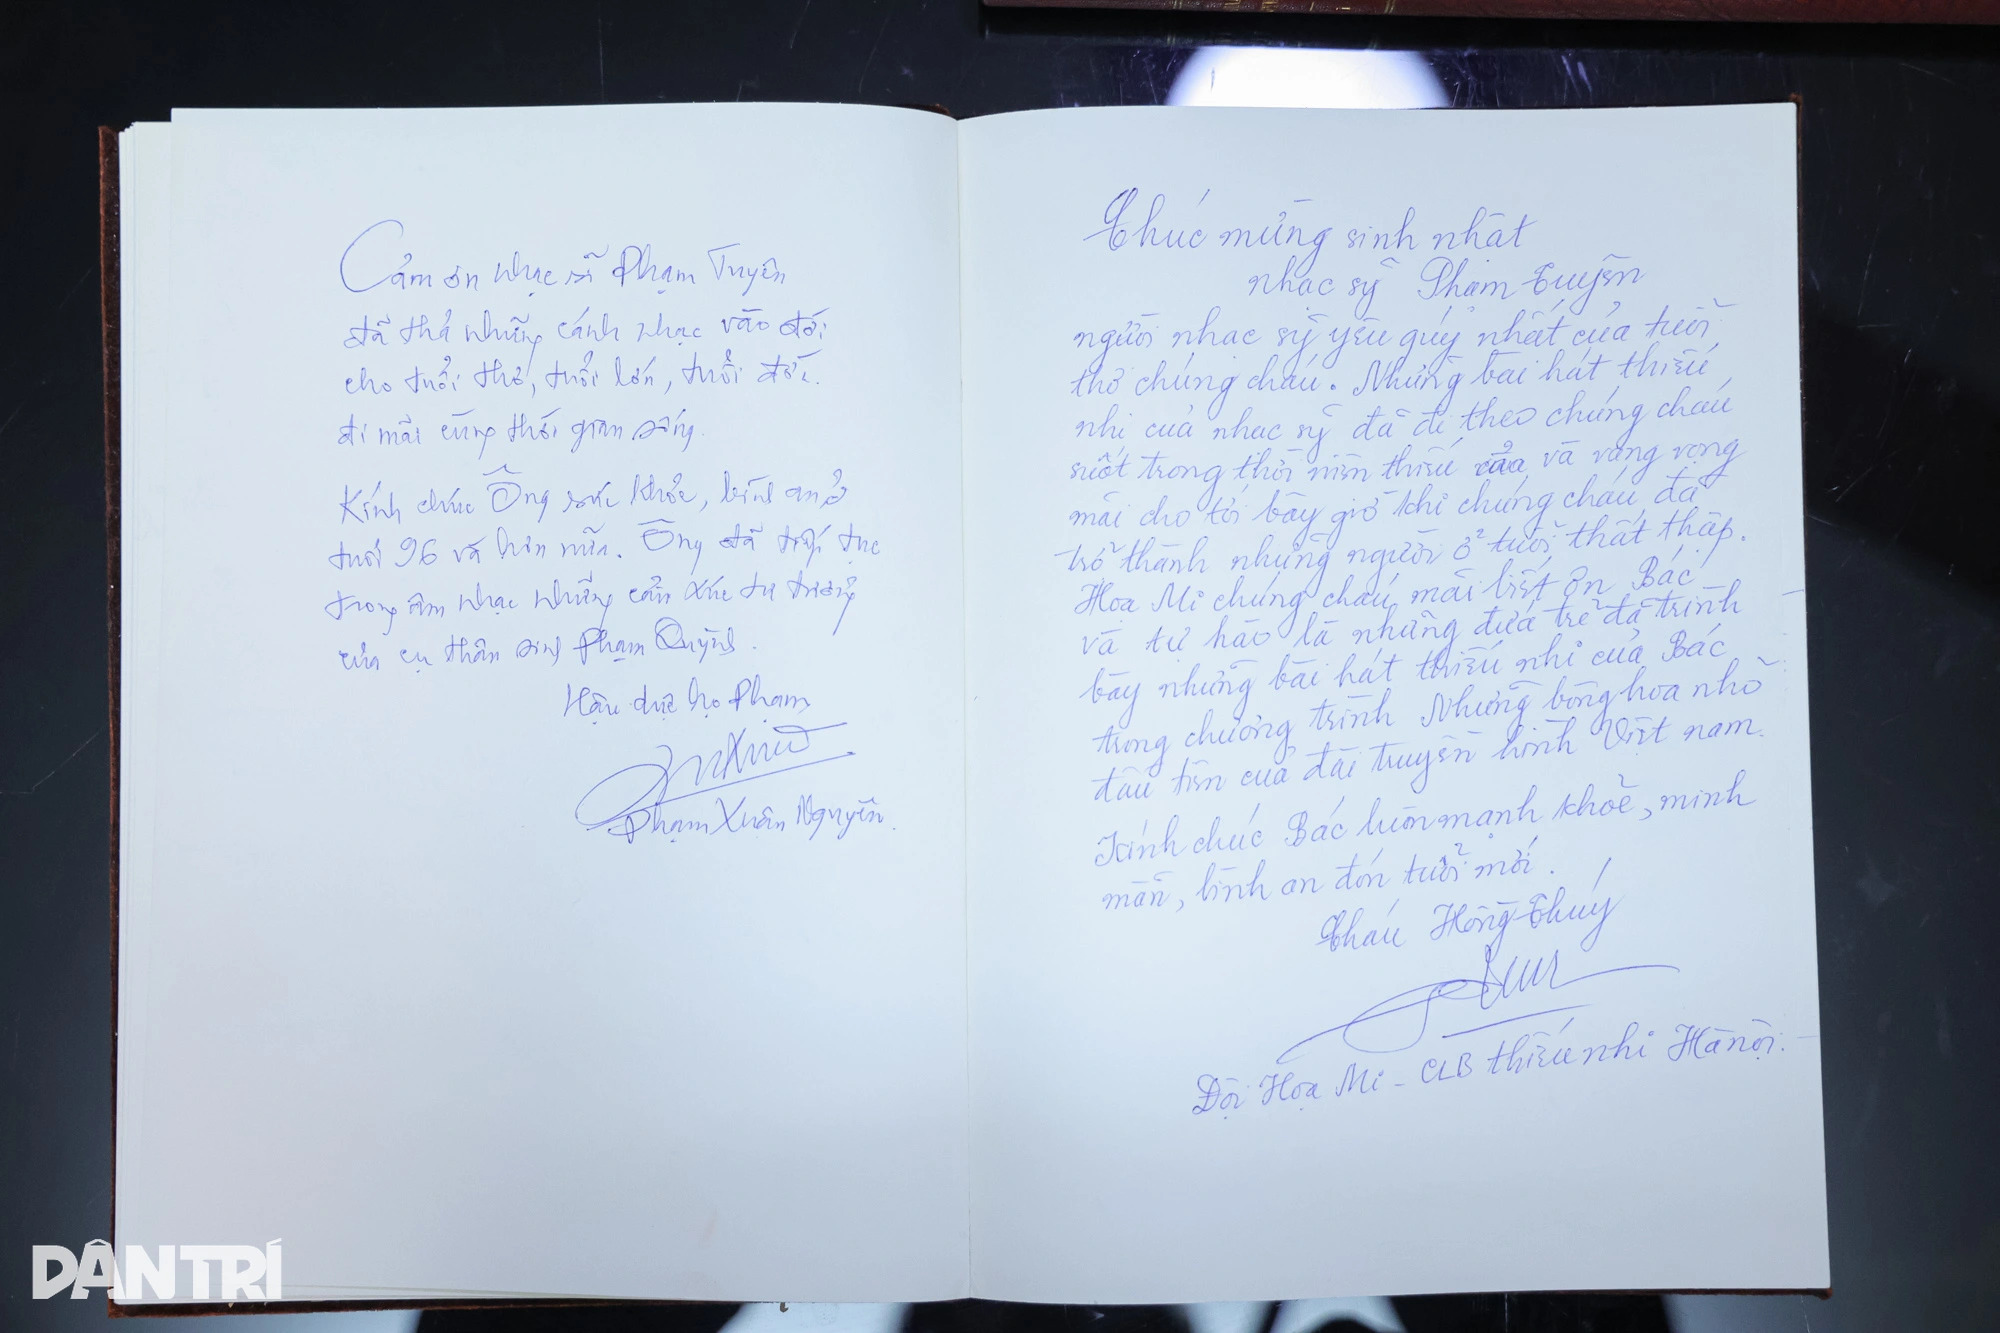 Cảm ơn nhạc sĩ Phạm Tuyên
đã thả những cánh nhạc vào đời
cho tuổi thơ, tuổi lớn, tuổi đời.
đi mãi cùng thời gian sống.
Kính chúc Ông sức khỏe, bình an, ở
tuổi 96 và hơn nữa. Ông đã tiếp tục
trong âm nhạc những cảm xúc tư tưởng
của cụ thân sinh Phạm Quỳnh.
Hậu duệ họ Phạm
Phạm Xuân Nguyên.
Chúc mừng sinh nhật
nhạc sỹ Phạm Tuyên
người nhạc sỹ yêu quý nhất của tuổi
thơ chúng cháu. Những bài hát thiếu
nhi của nhạc sỹ đã đi theo chúng cháu
suốt trong thời niên thiếu của và vang vọng
mãi cho tới bây giờ khi chúng cháu, đã
trở thành những người ở tuổi thất thập.
Họa Mi chúng cháu mãi biết ơn Bác
và tự hào là những đứa trẻ đã trình
bày những bài hát thiếu nhi của Bác
trong chương trình Những bông hoa nhỏ
đầu tiên của đài truyền hình Việt nam.
Kính chúc Bác luôn mạnh khỏe, minh
mẫn, bình an đón tuổi mới.
Cháu Hồng Thúy
Đội Họa Mi - CLB thiếu nhi Hà nội.
DÂN TRÍ